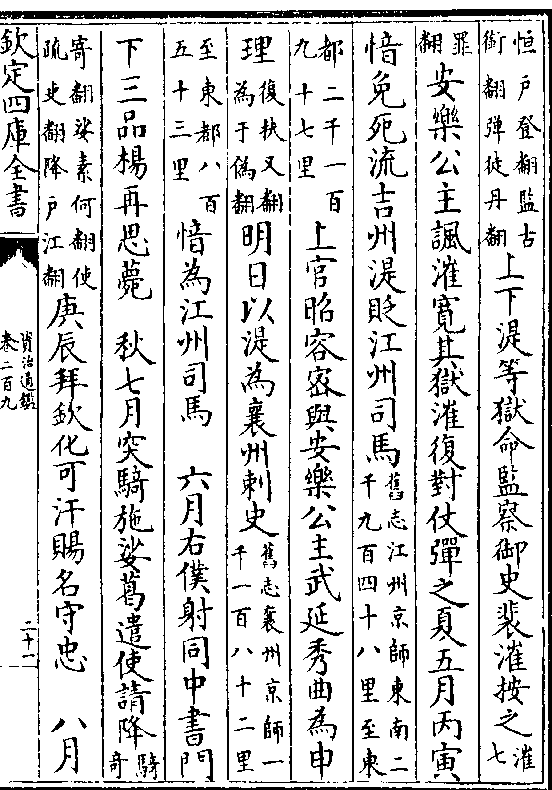 恒戸登翻監古銜翻彈徒丹翻上下湜等獄命監察御史裴漼按之漼七
罪翻安樂公主諷漼寛其獄漼復對仗彈之夏五月丙寅
愔免死流吉州湜貶江州司馬舊志江州京師東南二千九百四十八里至東
都二千一百九十七里上官昭容宻與安樂公主武延秀曲為申
理復扶又翻為于偽翻明日以湜為襄州刺史舊志襄州京師一千一百八十二里
至東都八百五十三里愔為江州司馬 六月右僕射同中書門
下三品楊再思薨 秋七月突騎施娑葛遣使請降騎奇
寄翻娑素何翻使疏吏翻降戸江翻庚辰拜欽化可汗賜名守忠 八月
欽定四庫全書
資治通鑑
卷二百九
二十一